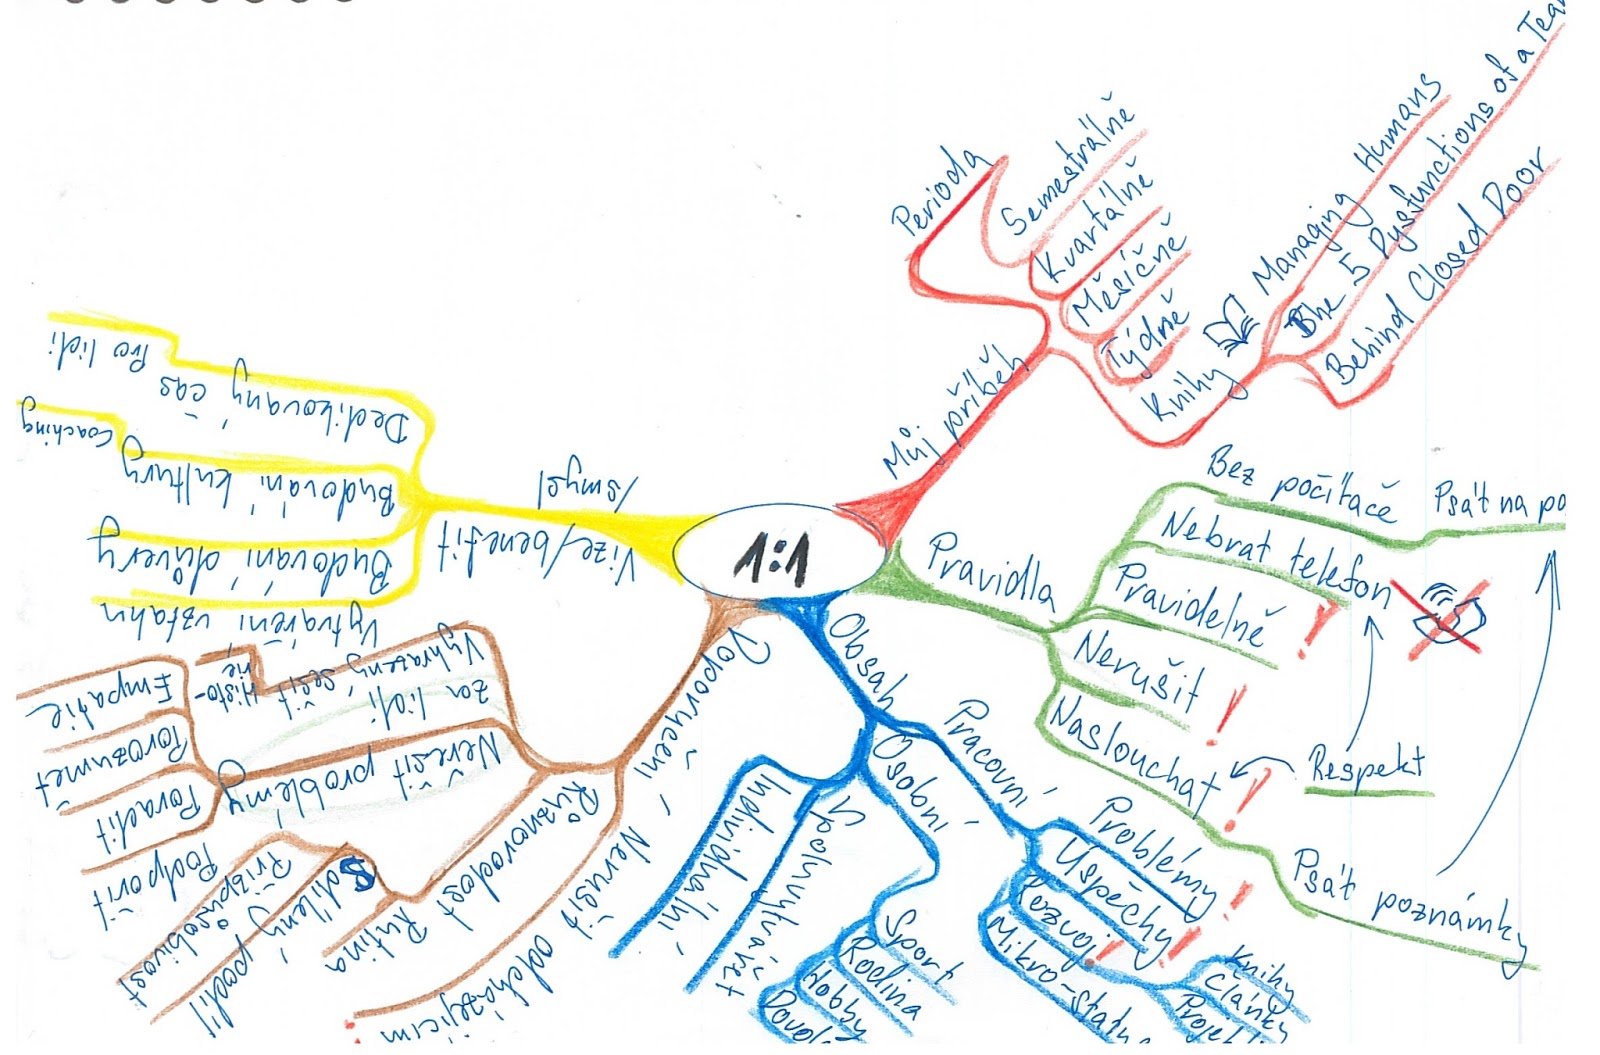 1:1
Můj příběh
Perioda
Semestrálně
Kvartálně
Měsíčně
Týdně
Knihy
Managing Humans
The 5 Dysfunctions of a Tea
Behind Closed Door
Pravidla
Bez počítače
Psát na po
Nebrat telefon
Pravidelně !
Nerušit !
Naslouchat !
Respekt
Psát poznámky
Obsah
Pracovní
Problémy !
Úspěchy !
Rozvoj !
Knihy
Články
Mikro-stat
Osobní
Sport
Rodina
Hobby
Spoluvytvářet
Individuální
Doporučení
Nerušit odcházejícím
Různorodost
Rutina
Sdílený podíl
Přizpůsobivost
Neřešit problémy
za lidi
Empatie
Porozumět
Poradit
Podpořit
Vyhrazený sešit
Histo-
rie
Vize/benefit
/smysl
Dedikovaný čas
Pro lidi
Budování kultury
Coaching
Budování důvěry
Vytváření vztahu